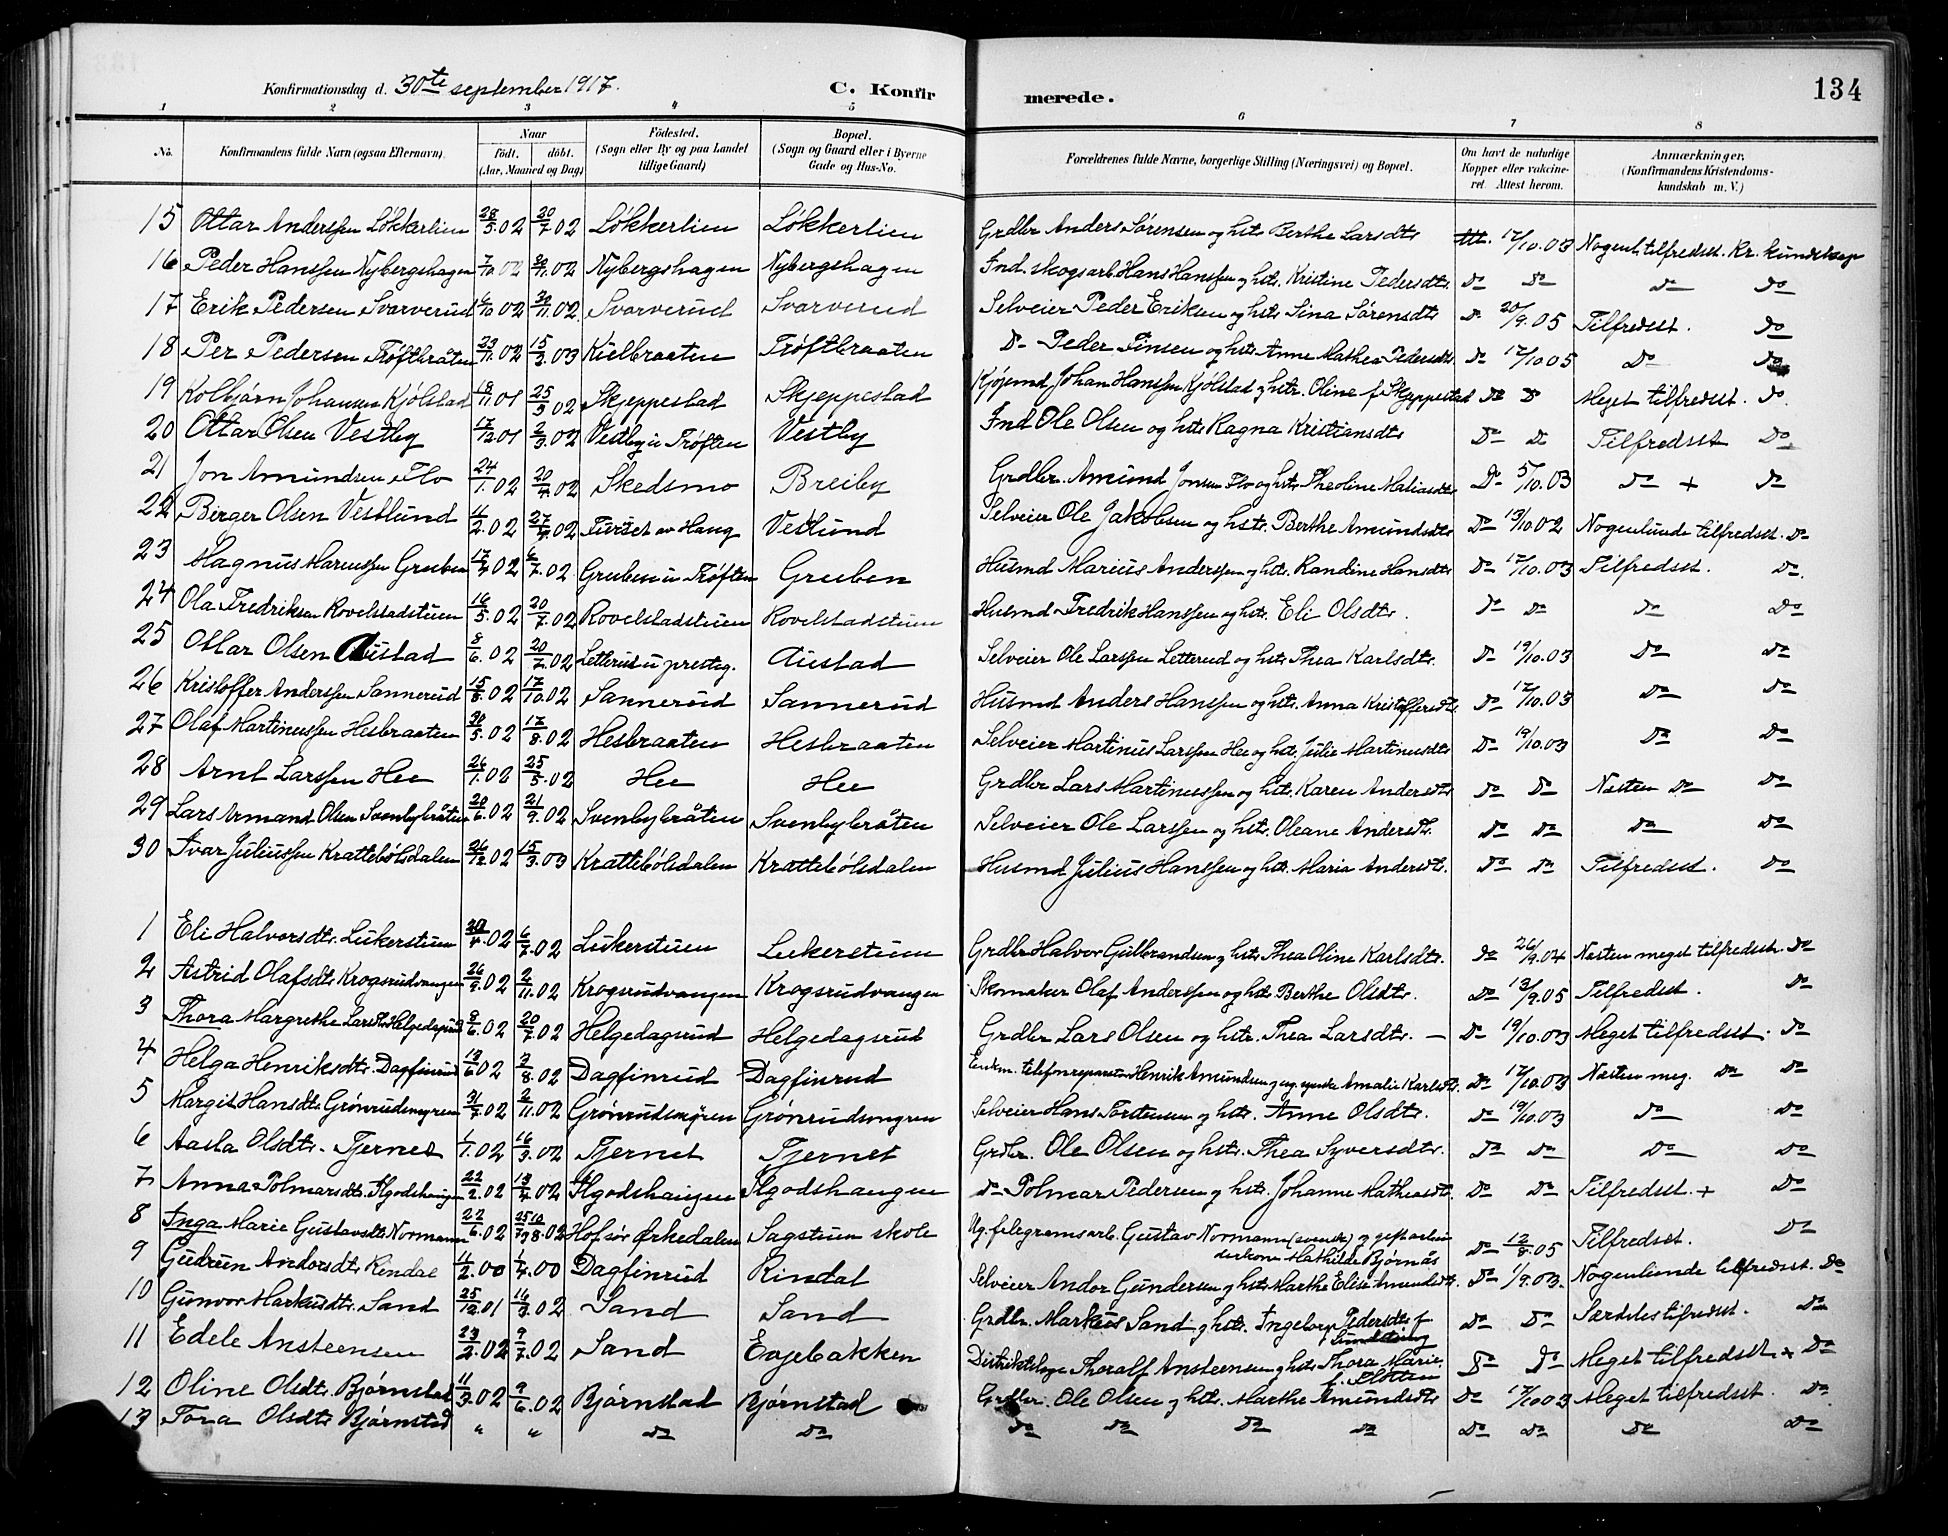 134
Konfirmationsdag d. 30te september 1917. C. Konfirmerede.
1 2 3 4 5 6 7 8
No. Konfirmandens fulde Navn (ogsaa Efternavn). Naar født. døbt. (Aar, Maaned og Dag) Fødested. (Sogn eller By og paa Landet tillige Gaard) Bopæl. (Sogn og Gaard eller i Byerne Gade og Hus-No. Forældrenes fulde Navne, borgerlige Stilling (Næringsvei) og Bopæl. Om havt de naturlige Kopper eller vakcineret. Attest herom. Anmærkninger. (Konfirmandens Kristendomskundskab m. V.)
15 Ottar Anderssen Løkkerlien 28/5.02 20/7.02 Løkkerlien Løkkerlien Grdbr Anders Sørensen og hstr. Berthe Larsdtr Att. 17/10.03 Nogenl. tilfredsst. Kr. kundskap
16 Peder Hanssen Nybergshagen 7/10 02 30/11.02 Nybergshagen Nybergshagen Ind. skogsarb. Hans Hanssen og hstr. Kristine Pedersdtr. Do Do Do Do
17 Erik Pedersen Svarverud 6/10 02 30/11.02 Svarverud Svarverud Selveier Peder Eriksen og hstr Sina Sørensdtr Do 25/9.05 Tilfredsst. Do
18 Per Pedersen Trøftbråten 23/11.02 15/3.03 Kielbraaten Trøftbraaten Do Peder Finsen og hstr Anne Mathea Pedersdtr Do 17/10 05 Do Do
19 Kolbjørn Johansen Kjølstad 18/11 01 25/3 02 Skjeppestad Skjeppestad Kjøpmd Johan Hanssen Kjølstad og hstr. Oline f. Skjeppestad Do Do Meget tilfredsst. Do
20 Ottar Olsen Vestby 17/12 01 2/3.02 Vestby i Trøften Vestby Ind Ole Olsen og hstr. Ragna Kristiansdtr Do Do Tilfredsst Do
21 Jon Amundsen Flo 24/1.02 20/4.02 Skedsmo Breiby Grdbr. Amund Jonsen Flo og hstr. Theoline Mathiasdtr Do 5/10.03 Do + Do
22 Birger Olsen Vestlund 11/2.02 27/4.02 Furset av Haug Vestlund Selveier Ole Jakobsen og hstr. Berthe Amundsdtr Do 13/10 02 Nogenlunde tilfredsst. Do
23 Magnus Mariussen Gruben 17/4 02 6/7.02 Gruben i Trøften Gruben Husmd Marius Anderssen og hstr. Randine Hansdtr Do 17/10.03 Tilfredsst. Do
24 Ola Fredriksen Rovelstadstuen 16/5.02 20/7.02 Rovelstadstuen Rovelstadstuen Husmd Fredrik Hanssen og hstr. Eli Olsdtr. Do Do Do Do
25 Ottar Olsen Austad 8/6.02 20/7.02 Letterud u presteg. Austad Selveier Ole Larssen Letterud og hstr. Thea Karlsdtr. Do 19/10.03 Do Do
26 Kristoffer Anderssen Sannerud 15/8.02 17/10.02 Sannerud Sannerud Husmd Anders Hanssen og hstr. Anna Kristoffersdtr. Do 17/10.03 Do Do
27 Olaf Martinussen Hesbraaten 30/5.02 17/8.02 Hesbraaten Hesbraaten Selveier Martinus Larssen Hee og hstr. Julie Martinusdtr Do 19/10.03 Do Do
28 Arnt Larssen Hee 26/1.02 25/5.02 Hee Hee Grdbr Lars Martinussen og hstr. Karen Andersdtr Do Do Næsten Do Do
29 Lars Armand Olsen Svenbybråten 20/6.02 21/9.02 Svenbybråten Svenbybråten Selveier Ole Larssen og hstr. Oleane Andersdtr. Do Do Do Do
30 Ivar Juliussen Krattebølsdalen 26/12.02 15/3.03 Krattebølsdalen Krattebølsdalen Husmd Julius Hanssen og hstr. Maria Andersdtr. Do Do Tilfredsst. Do
1 Eli Halvorsdtr. Lukerstuen 20/4.02 6/7.02 Lukerstuen Lukerstuen Grdbr Halvor Gulbrandsen og hstr Thea Oline Karlsdtr. Do 26/9.04 Næsten meget tilfredsst. Do
2 Astrid Olafsdtr Krogsrudvangen 26/9.02 2/11.02 Krogsrudvangen Krogsrudvangen Skomaker Olaf Anderssen og hstr Berthe Olsdtr. Do 13/9.05 Tilfredsst. Do
3 Thora Margrethe Larsdtr Helgedagsrud 9/6.02 20/7.02 Helgedagsrud Helgedagsrud Grdbr Lars Olsen og hstr. Thea Larsdtr. — Do 19/10.03 Meget tilfredsst. Do
4 Helga Henriksdtr. Dagfinrud 13/6 02 3/8.02 Dagfinrud Dagfinrud Enkm. telefonreparatør Henrik Amundsen og ug. Amalie Karlsdtr. Do 17/10.03 Næsten meg. Do Do
5 Margit Hansdtr. Grønrudmyren 31/7.02 2/11.02 Grønrudsmyren Grønrudsmyren Selveier Hans Torstensen og hstr. Anne Olsdtr. Do 19/10.03 Do Do
6 Aasta Olsdtr. Tjernet 1/1.02 16/3.02 Tjernet Tjernet Grdbr. Ole Olsen og hstr. Thea Syversdtr. Do Do Do Do
7 Anna Polmarsdtr. Algodshaugen 22/2.02 13/4.02 Algodshaugen Algodshaugen Do Polmar Pedersen og hstr. Johanne Mathiasdtr. Do Do Tilfredsst. + Do
8 Inga Marie Gustavsdtr Normann 22/6.02 Hof sør Ørkedalen Sagstuen skole Ug. Gustav Normann (svensk) og gift Mathilde Bjørnås Do 12/8.05 Tilfredsst. Do
9 Gudrun Andorsdtr Rindal 11/2.00 1/4.00 Dagfinrud Rindal Selveier Andor Gundersen og hstr. Marthe Elise Amundsdtr. Do 1/9.03. Nogenlunde tilfredsst. Do
10 Gunvor Markusdtr. Sand 25/12.01 16/3.02 Sand Sand Grdbr. Markus Sand og hstr. Ingeborg Pedersdtr f. Do Do Særdeles tilfredsst. Do
11 Edele Ansteensen 23/2.02 9/7.02 Sand Evjebakken Distriktslæge Thoralf Ansteensen og hstr Thora Marie f. Do Do Meget tilfredsst. + Do
12 Oline Olsdtr. Bjørnstad 11/3.02 9/6.02 Bjørnstad Bjørnstad Grdbr. Ole Olsen og hstr. Marthe Amundsdtr Do 17/10 03 Meget tilfredsst. Do
13 Tora Olsdtr Bjørnstad " " Do Do Do Do Do Do Do Do Do Do